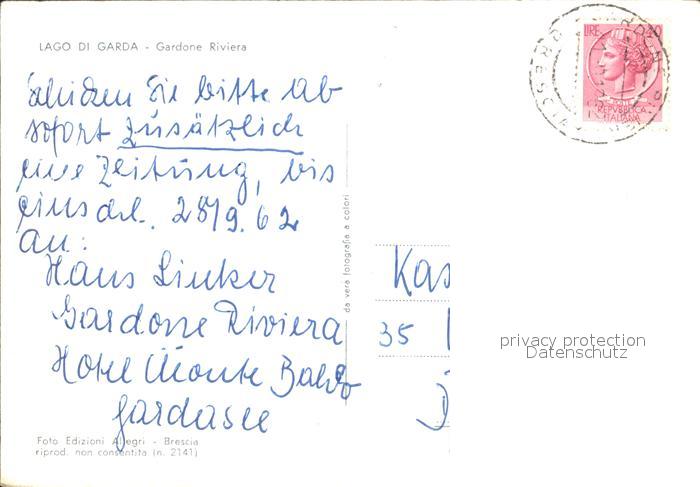 LAGO DI GARDA - Gardone Riviera
Schicken Sie bitte ab
sofort zusätzlich
eine Zeitung, bis
einschl. 28/9. 62
an:
Hans Linker
Gardone Riviera
Hotel Monte Baldo
Gardasee
Foto Edizioni Allegri - Brescia
riprod. non consentita (n. 2141)
da vera fotografia a colori
LIRE 40
REPVBBLICA
ITALIANA
Kas
35
privacy protection
Datenschutz